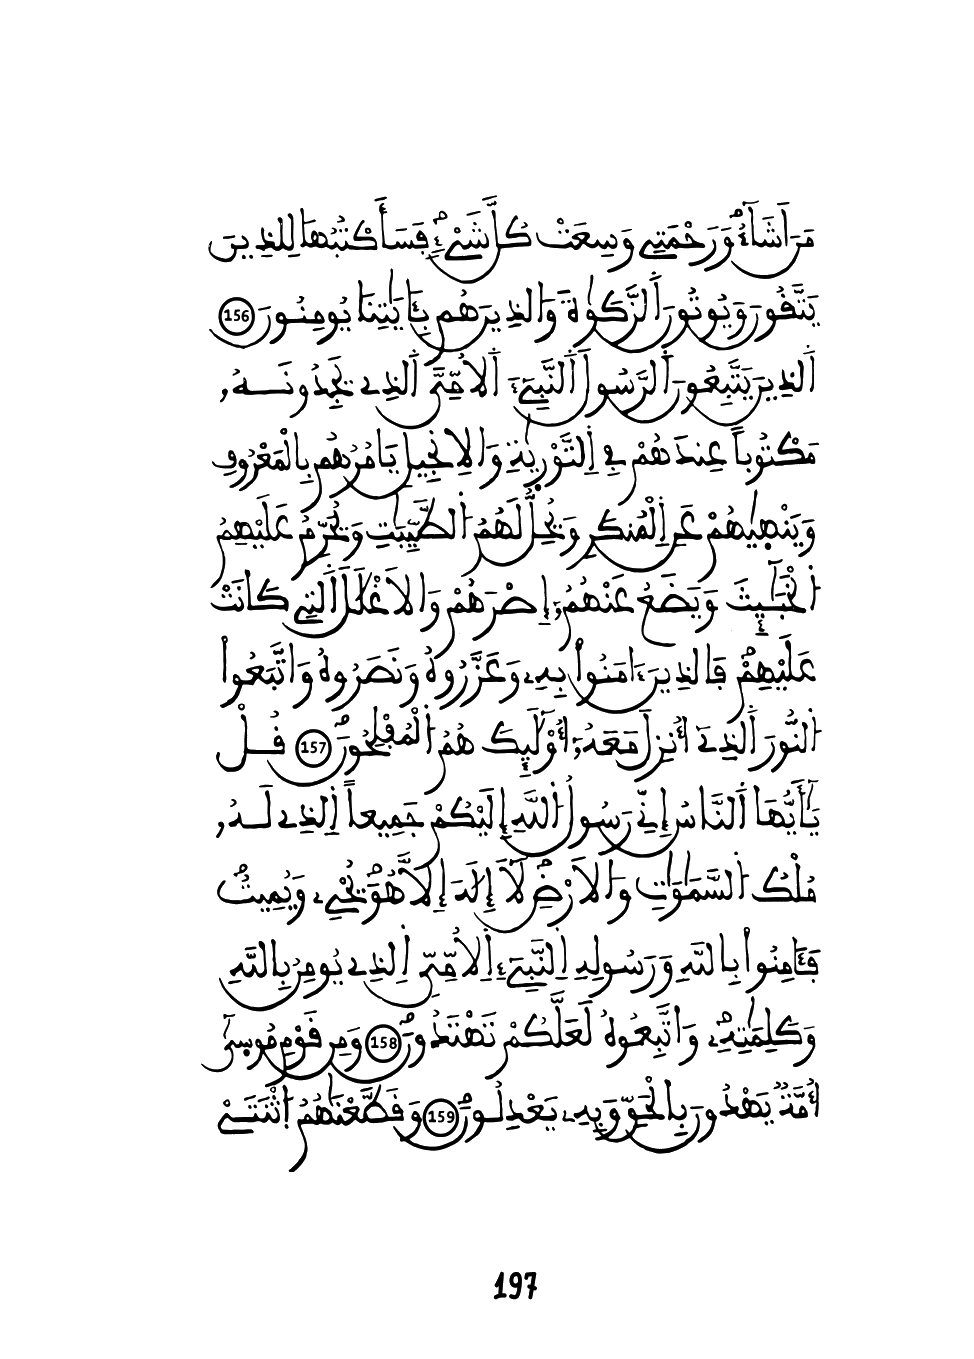 مَنَ اَشَآءُ وَرَحْمَتِے وَسِعَتْ كُلَّ شَےْءٖ فَسَأَكْتُبُهَا لِلذِينَ
يَتَّقُونَ وَيُوتُونَ اَلزَّكَوٰةَ وَالذِينَ هُم بِـَٔايَٰتِنَا يُومِنُونَ 156
اَلذِينَ يَتَّبِعُونَ اَلرَّسُولَ اَلنَّبِےٓءَ اَلُامِّىَّ اَلذِے يَجِدُونَهُۥ
مَكْتُوباً عِندَهُمْ فِے اِلتَّوْرَيٰةِ وَالِانجِيلِ يَامُرُهُم بِالْمَعْرُوفِ
وَيَنْهَيٰهُمْ عَنِ اِلْمُنكَرِ وَيُحِلُّ لَهُمُ اُلطَّيِّبَٰتِ وَيُحَرِّمُ عَلَيْهِمُ
اُلْخَبَٰٓئِثَ وَيَضَعُ عَنْهُمُۥٓ إِصْرَهُمْ وَالَاغْلَٰلَ اَلتِے كَانَتْ
عَلَيْهِمْ فَالذِينَ ءَامَنُواْ بِهِۦ وَعَزَّرُوهُ وَنَصَرُوهُ وَاتَّبَعُواْ
اُلنُّورَ اَلذِےٓ أُنزِلَ مَعَهُۥٓ أُوْلَٰٓئِكَ هُمُ اُلْمُفْلِحُونَ 157 قُلْ
يَٰٓأَيُّهَا اَلنَّاسُ إِنِّے رَسُولُ اُللَّهِ إِلَيْكُمْ جَمِيعاً اِلذِے لَهُۥ
مُلْكُ اُلسَّمَٰوَٰتِ وَالَارْضِ لَآ إِلَٰهَ إِلَّا هُوَ يُحْيِۦ وَيُمِيتُ
فَـَٔامِنُواْ بِاللَّهِ وَرَسُولِهِ اِلنَّبِےٓءِ اِلُامِّىِّ اِلذِے يُومِنُ بِاللَّهِ
وَكَلِمَٰتِهِۦ وَاتَّبِعُوهُ لَعَلَّكُمْ تَهْتَدُونَ 158 وَمِن قَوْمِ مُوسَىٰٓ
أُمَّةٌ يَهْدُونَ بِالْحَقِّ وَبِهِۦ يَعْدِلُونَ 159 وَقَطَّعْنَٰهُمُ اُثْنَتَےْ
197